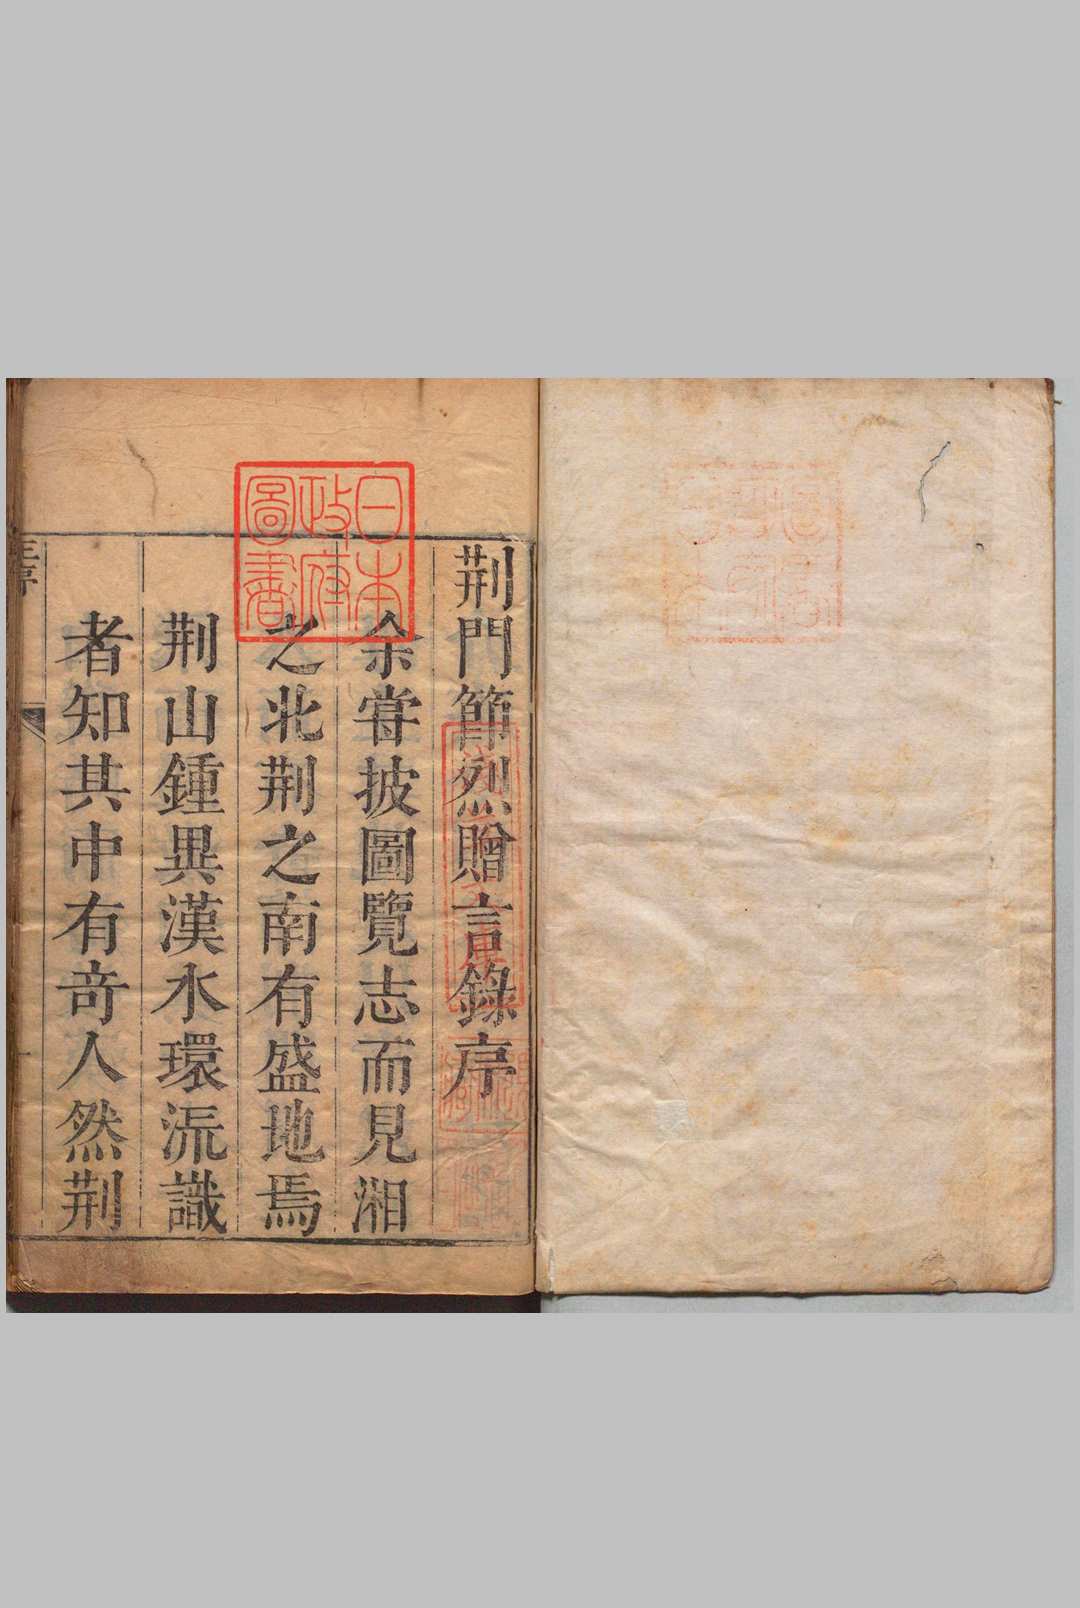 荆門節烈贈言錄序
余嘗披圖覽志而見湘
之北荆之南有盛地焉
荆山鍾異漢水環流識
者知其中有竒人然荆
日本
政府
圖書